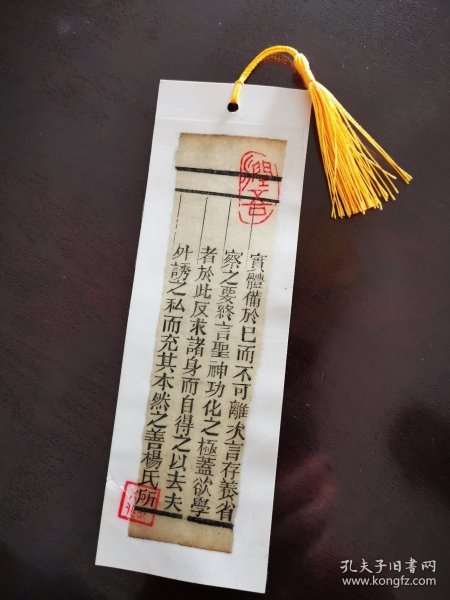 實體備於巳而不可離次言存養省
察之要終言聖神功化之極蓋欲學
者於此反求諸身而自得之以去夫
外誘之私而充其本然之善楊氏所
孔夫子旧书网
www.kongfz.com